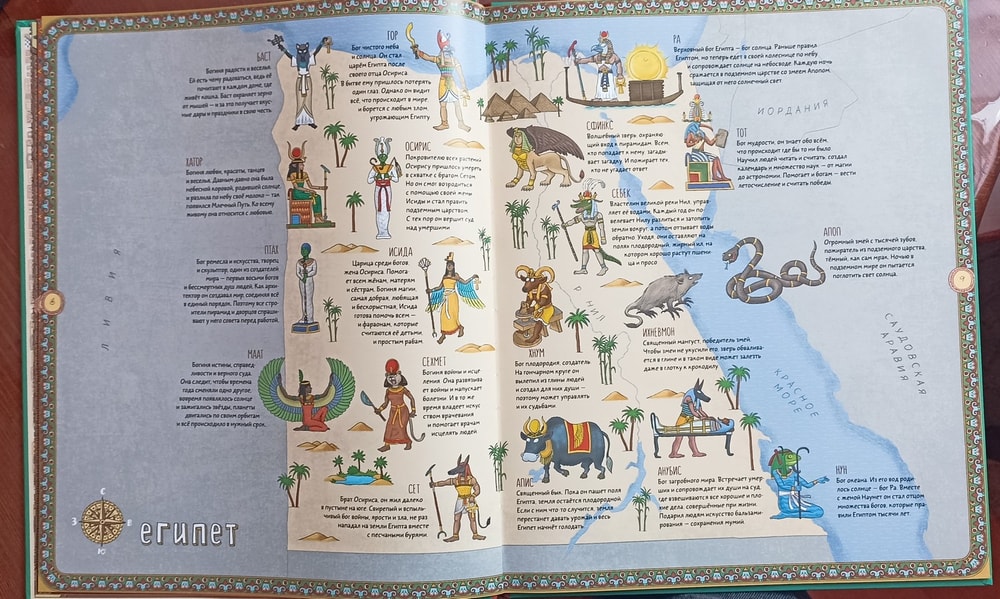 БАСТ
Богиня радости и веселья.
Ей есть чему радоваться, ведь её
почитают в каждом доме, где
живёт кошка. Баст охраняет зерно
от мышей — и за это получает вкус-
ные дары и праздники в свою честь.
ГОР
Бог чистого неба
и солнца. Он стал
царём Египта после
своего отца Осириса.
В битве ему пришлось потерять
один глаз. Однако он видит
всё, что происходит в мире,
и борется с любым злом,
угрожающим Египту.
ХАТОР
Богиня любви, красоты, танцев
и веселья. Давным-давно она была
небесной коровой, родившей солнце
и разлила по небу своё молоко — так
появился Млечный Путь. Ко всему
живому она относится с любовью.
ОСИРИС
Покровителю всех растений
Осирису пришлось умереть
в схватке с братом Сетом.
Но он смог возродиться
с помощью своей жены
Исиды и стал править
подземным царством.
С тех пор он вершит суд
над умершими
ПТАХ
Бог ремесла и искусства, творец
и скульптор, один из создателей
мира — первых восьми богов
и бессмертных душ людей. Как архи-
тектор он создавал мир, соединяя всё
в единый порядок. Поэтому все стро-
ители пирамид и дворцов спраши-
вают у него совета перед работой.
ИСИДА
Царица среди богов,
жена Осириса. Помога-
ет всем жёнам, матерям
и сёстрам. Богиня магии,
самая добрая, любящая
и бескорыстная, Исида
готова помочь всем —
и фараонам, которые
считаются её детьми,
и простым рабам.
МААТ
Богиня истины, справед-
ливости и верного суда.
Она следит, чтобы времена
года сменяли одно другое,
вовремя появлялось солнце
и зажигались звёзды, планеты
двигались по своим орбитам
и всё происходило в нужный срок.
СЕХМЕТ
Богиня войны и исце-
ления. Она развязыва-
ет войны и напускает
болезни. И в то же
время владеет искус-
ством врачевания
и помогает врачам
исцелять людей.
СЕТ
Брат Осириса, он жил далеко
в пустыне на юге. Свирепый и вспыль-
чивый бог войны, ярости и зла, не раз
нападал на земли Египта вместе
с песчаными бурями.
ЛИВИЯ
6
С
З
В
Ю
ЕГИПЕТ
РА
Верховный бог Египта — бог солнца. Раньше правил
Египтом, но теперь едет в своей колеснице по небу
и сопровождает солнце на небосводе. Каждую ночь
сражается в подземном царстве со змеем Апопом,
защищая от него солнечный свет.
ИОРДАНИЯ
СФИНКС
Волшебный зверь, охраняю-
щий вход к пирамидам. Всем,
кто попадает к нему, загады-
вает загадку. И пожирает тех,
кто не угадает ответ
ТОТ
Бог мудрости, он знает обо всём,
что происходит где бы то ни было.
Научил людей читать и считать, создал
календарь и множество наук — от магии
до астрономии. Помогает и богам — вести
летосчисление и считать победы.
СЕБЕК
Властелин великой реки Нил, управ-
ляет её водами. Каждый год он по-
велевает Нилу разлиться и затопить
земли вокруг, а потом отзывает воды
обратно. Уходя, они оставляют на
полях плодородный, жирный ил, на
котором хорошо растут пшени-
ца и просо.
АПОП
Огромный змей с тысячей зубов,
пожиратель из подземного царства,
тёмный, как сам мрак. Ночью в
подземном мире он пытается
поглотить свет солнца.
9
Р. НИЛ
ХНУМ
Бог плодородия, создатель.
На гончарном круге он
вылепил из глины людей
и создал для них души —
поэтому может управлять
и их судьбами.
ИХНЕВМОН
Священный мангуст, победитель змей.
Чтобы змеи не укусили его, зверь обвалива-
ется в глине и в таком виде может залезть
даже в глотку к крокодилу.
КРАСНОЕ
МОРЕ
САУДОВСКАЯ
АРАВИЯ
АПИС
Священный бык. Пока он пашет поля
Египта, земля остаётся плодородной.
Если с ним что-то случится, земля
перестанет давать урожай и весь
Египет начнёт голодать
АНУБИС
Бог загробного мира. Встречает умер-
ших и сопровождает их души на суд,
где взвешиваются все хорошие и пло-
хие дела, совершённые при жизни.
Подарил людям искусство бальзами-
рования — сохранения мумий.
НУН
Бог океана. Из его вод роди-
лось солнце — бог Ра. Вместе
с женой Наунет он стал отцом
множества богов, которые пра-
вили Египтом тысячи лет.